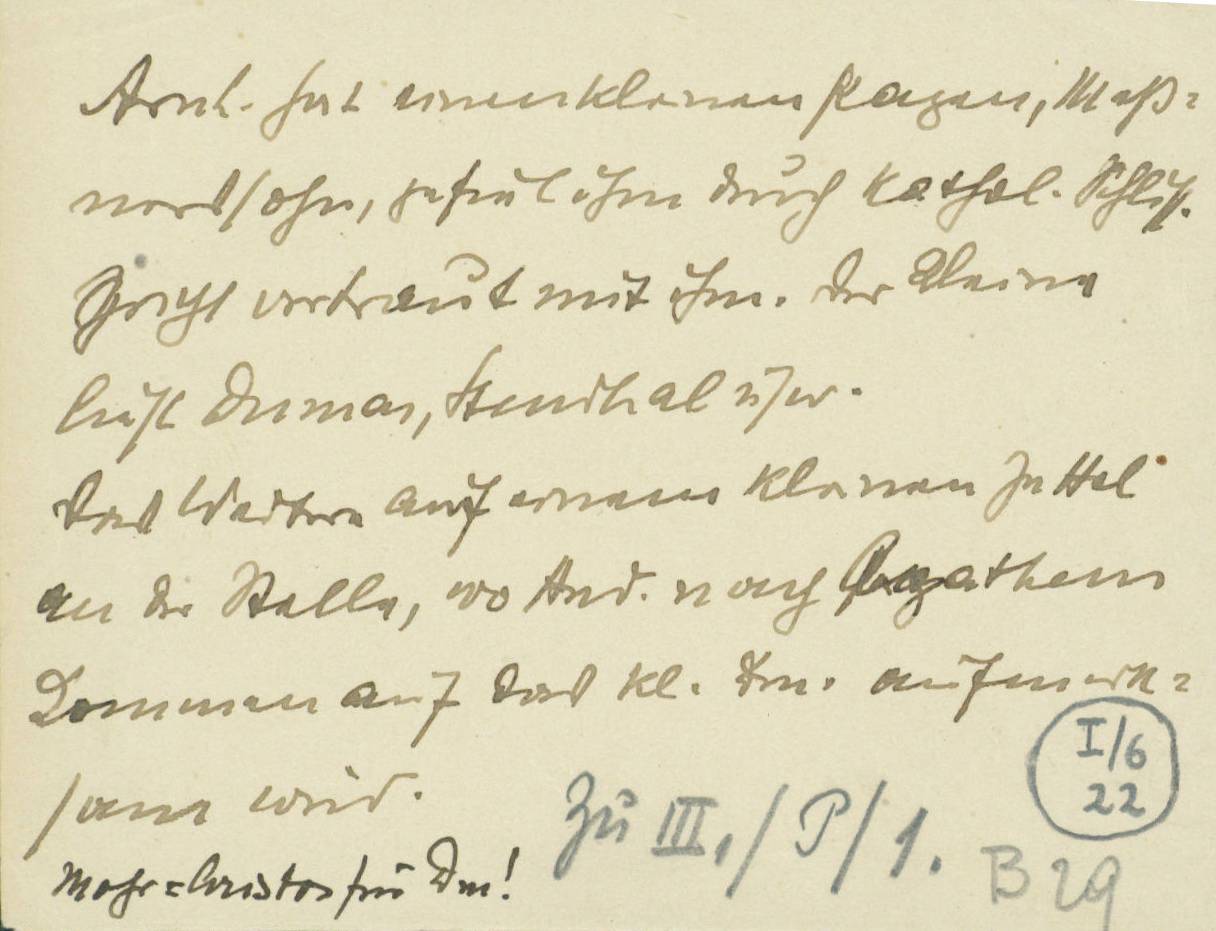 Arnh. hat einen kleinen Pagen, Meß=
nerssohn, gefiel ihm durch kathol. Schliff.
Spricht vertraut mit ihm. Der Kleine
liest Dumas, Stendhal usw.
Das Weitere auf einem kleinen Zettel
an der Stelle, wo And. nach Agathens
Kommen auf das kl. Dm. aufmerk=
sam wird.
Mohr=Christos für Dm!
Zu III,/P/1.
I/6
22
B 29